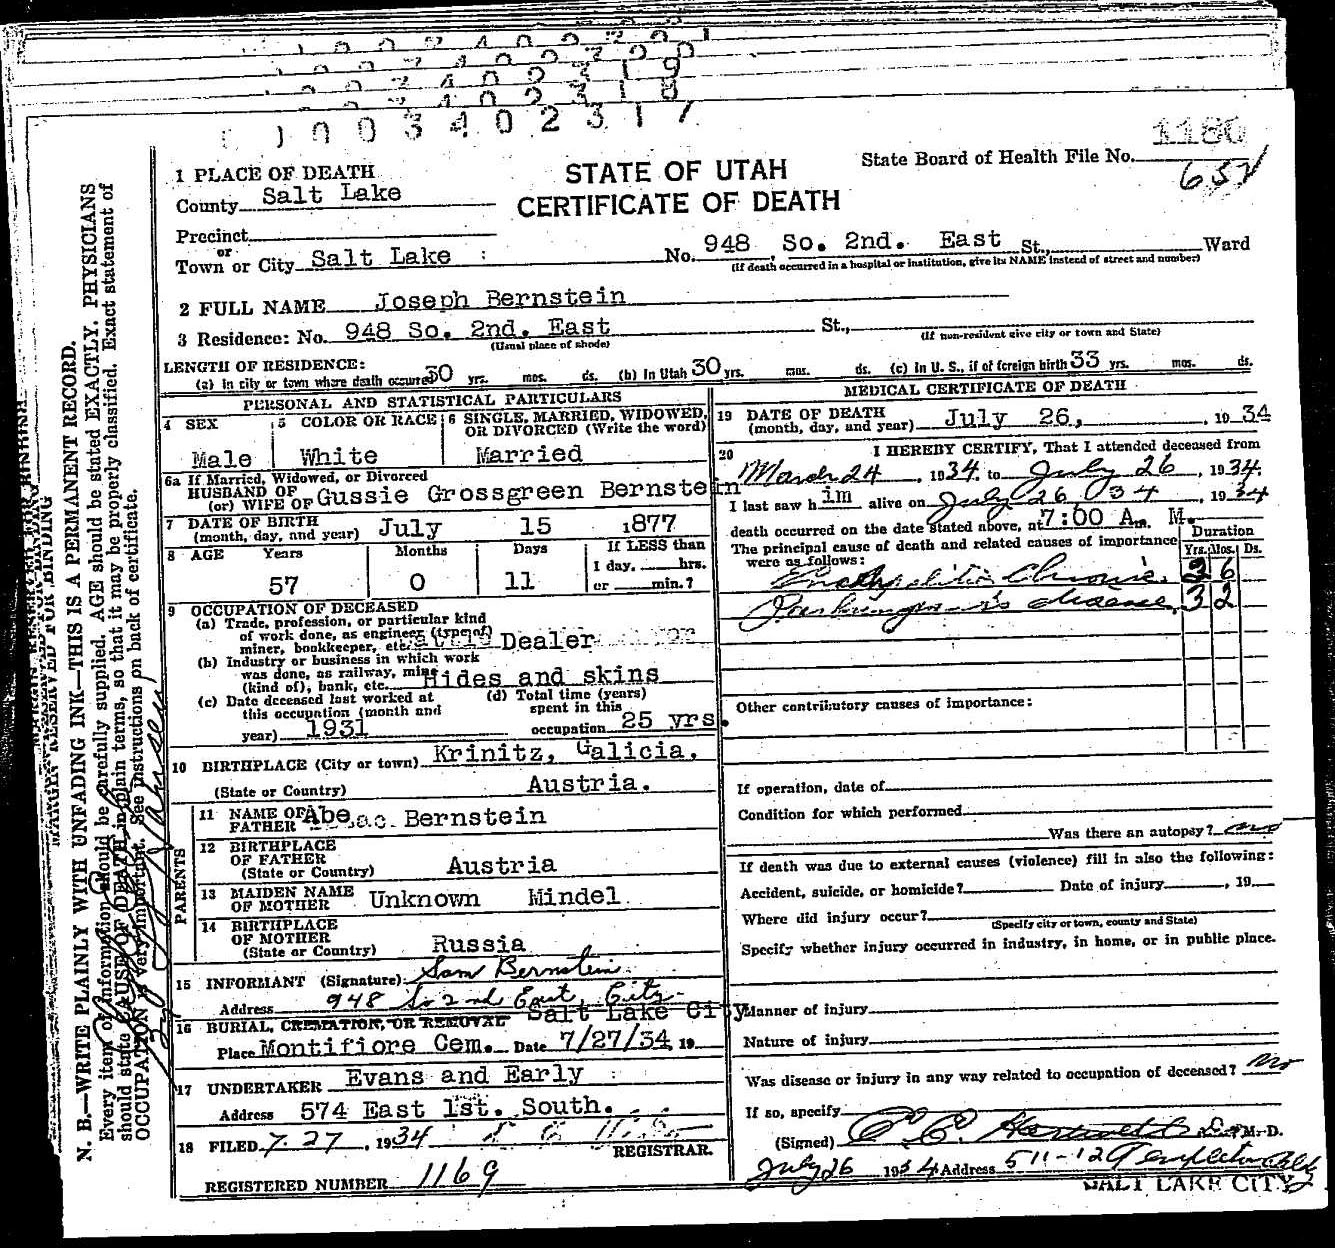 1003402317
1180
STATE OF UTAH
CERTIFICATE OF DEATH
State Board of Health File No.
1 PLACE OF DEATH
County Salt Lake
Precinct
or
Town or City Salt Lake : No. 948 So. 2nd. East St., Ward
(If death occurred in a hospital or institution, give its NAME instead of street and number)
2 FULL NAME Joseph Bernstein
3 Residence: No. 948 So. 2nd. East St.,
(Usual place of abode) (If non-resident give city or town and State)
LENGTH OF RESIDENCE:
(a) In city or town where death occurred 30 yrs. mos. ds. (b) In Utah 30 yrs. mos. ds. (c) In U. S., if of foreign birth 33 yrs. mos. ds.
PERSONAL AND STATISTICAL PARTICULARS
4 SEX Male
5 COLOR OR RACE White
6 SINGLE, MARRIED, WIDOWED, OR DIVORCED (Write the word) Married
6a If Married, Widowed, or Divorced
HUSBAND OF
(or) WIFE OF Gussie Grossgreen Bernstein
7 DATE OF BIRTH
(month, day, and year) July 15 1877
8 AGE Years Months Days If LESS than
1 day, hrs.
57 0 11 or min.?
9 OCCUPATION OF DECEASED
(a) Trade, profession, or particular kind
of work done, as engineer (type of)
miner, bookkeeper, etc. Dealer
(b) Industry or business in which work
was done, as railway, mine
(kind of), bank, etc. Hides and skins
(c) Date deceased last worked at
this occupation (month and
year) 1931
(d) Total time (years)
spent in this
occupation 25 yrs.
10 BIRTHPLACE (City or town) Krinitz, Galicia,
(State or Country) Austria.
PARENTS
11 NAME OF
FATHER Abe Bernstein
12 BIRTHPLACE
OF FATHER
(State or Country) Austria
13 MAIDEN NAME
OF MOTHER Unknown Mindel
14 BIRTHPLACE
OF MOTHER
(State or Country) Russia
15 INFORMANT (Signature) Sam Bernstein
Address 948 So 2nd East, City
16 BURIAL, CREMATION, OR REMOVAL Salt Lake City
Place Montifiore Cem. Date 7/27/34 19
17 UNDERTAKER Evans and Early
Address 574 East 1st. South.
18 FILED 7-27, 1934
REGISTRAR.
REGISTERED NUMBER 1169
MEDICAL CERTIFICATE OF DEATH
19 DATE OF DEATH
(month, day, and year) July 26, 1934
20 I HEREBY CERTIFY, That I attended deceased from
March 24, 1934, to July 26, 1934.
I last saw h im alive on July 26 34, 1934
death occurred on the date stated above, at 7:00 A. M.
The principal cause of death and related causes of importance
were as follows:
Duration
Yrs. Mos. Ds.
Encephalitis Chronic. 3 6
Parkinson's disease. 3 2
Other contributory causes of importance:
If operation, date of
Condition for which performed
Was there an autopsy? no
If death was due to external causes (violence) fill in also the following:
Accident, suicide, or homicide? Date of injury , 19
Where did injury occur?
(Specify city or town, county and State)
Specify whether injury occurred in industry, in home, or in public place.
Manner of injury
Nature of injury
Was disease or injury in any way related to occupation of deceased? no
If so, specify
(Signed) M. D.
July 26 1934 Address 511-12 Templeton Bldg
SALT LAKE CITY
MARGIN RESERVED FOR BINDING
N. B.—WRITE PLAINLY WITH UNFADING INK—THIS IS A PERMANENT RECORD.
Every item of information should be carefully supplied. AGE should be stated EXACTLY. PHYSICIANS
should state CAUSE OF DEATH in plain terms, so that it may be properly classified. Exact statement of
OCCUPATION is very important. See instructions on back of certificate.